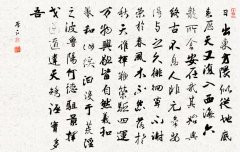 日出東方隈似從地底
來歷天又復入西海六
龍所舍安在哉其始與
終古不息人非元氣安
得與之久徘徊草不謝
榮於春風木不怨落於
秋天誰揮鞭策驅四運
萬物興歇皆自然羲和
羲和汝奚汩沒於荒淫
之波魯陽何德駐景揮
戈逆道違天矯誣實多
吾